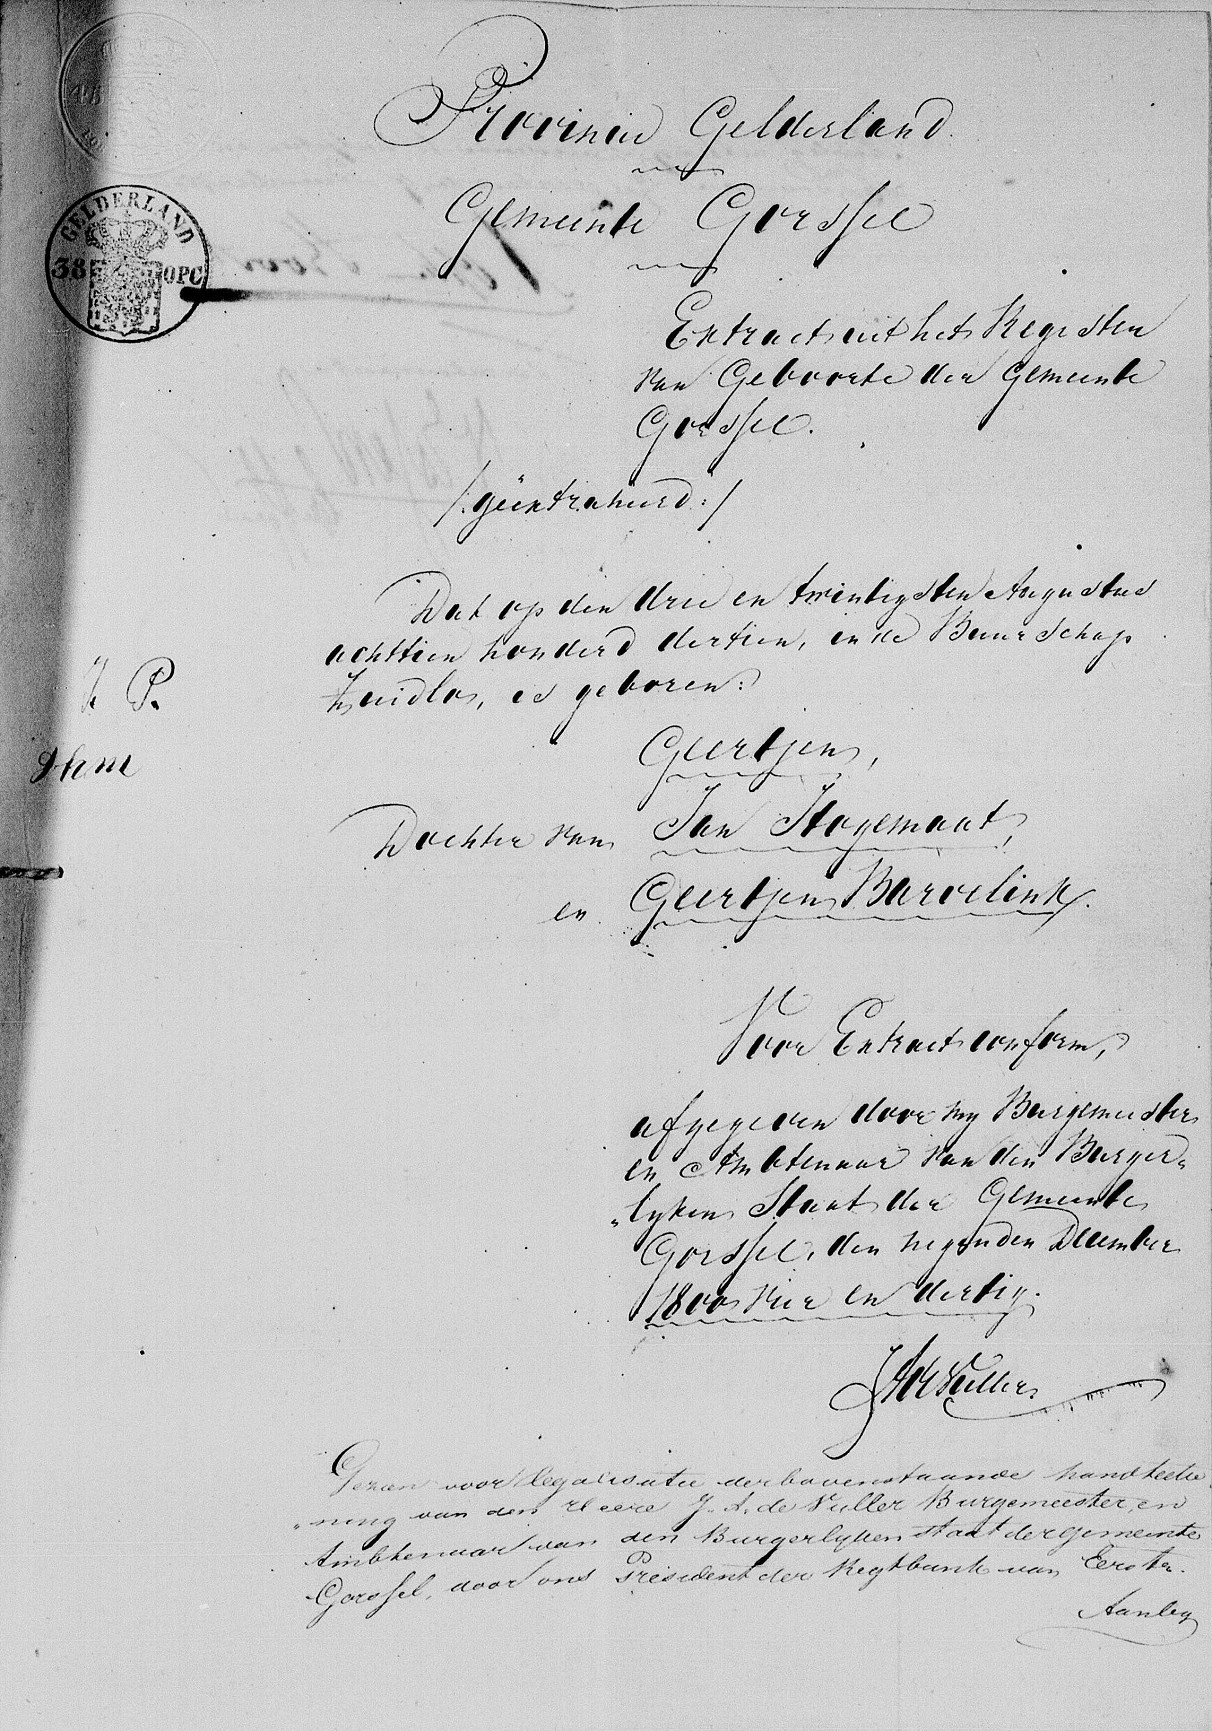 Provincie Gelderland
Gemeente Gorssel
GELDERLAND
38 OPC
Extract uit het Register
van Geboorte der Gemeente
Gorssel.
/:geëxtraheerd:/
Dat op den drie en twintigsten Augustus
achttien honderd dertien, in de Buurschap
Zuidlo, is geboren:
Geertjen,
Dochter van Jan Stogemaat,
en Geertjen Barvelink.
Voor Extract conform,
afgegeven door my Burgemeester
en Ambtenaar van den Burger„
„lyken Staat der Gemeente
Gorssel, den negenden December
1800 vier en dertig.
JAdeVuller
Gezien voor legalisatie der bovenstaande handteeke
„ning van den Heere J. A. de Vuller Burgemeester en
Ambtenaar van den Burgerlyken staat der gemeente
Gorssel, door ons President der Regtbank van Eerste
Aanleg